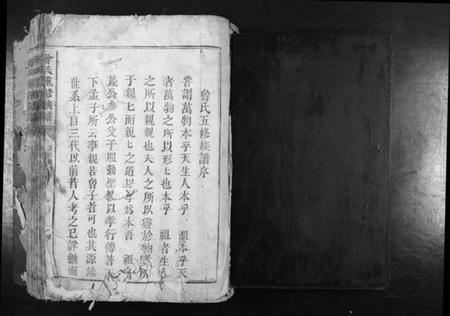 曾氏五修族譜序
嘗謂萬物本乎天生人本乎 祖本乎天
者萬物之所以形七也本乎 祖者生
之所以親親也夫人之所以靈於物
于親七而親七之道以孝為本吾 祖
公父子服勤聖教以孝行傳著
下孟子所云事親若曾子者可也其源流
世系上自三代以前昔人考之已詳繼而
曾氏五修族譜